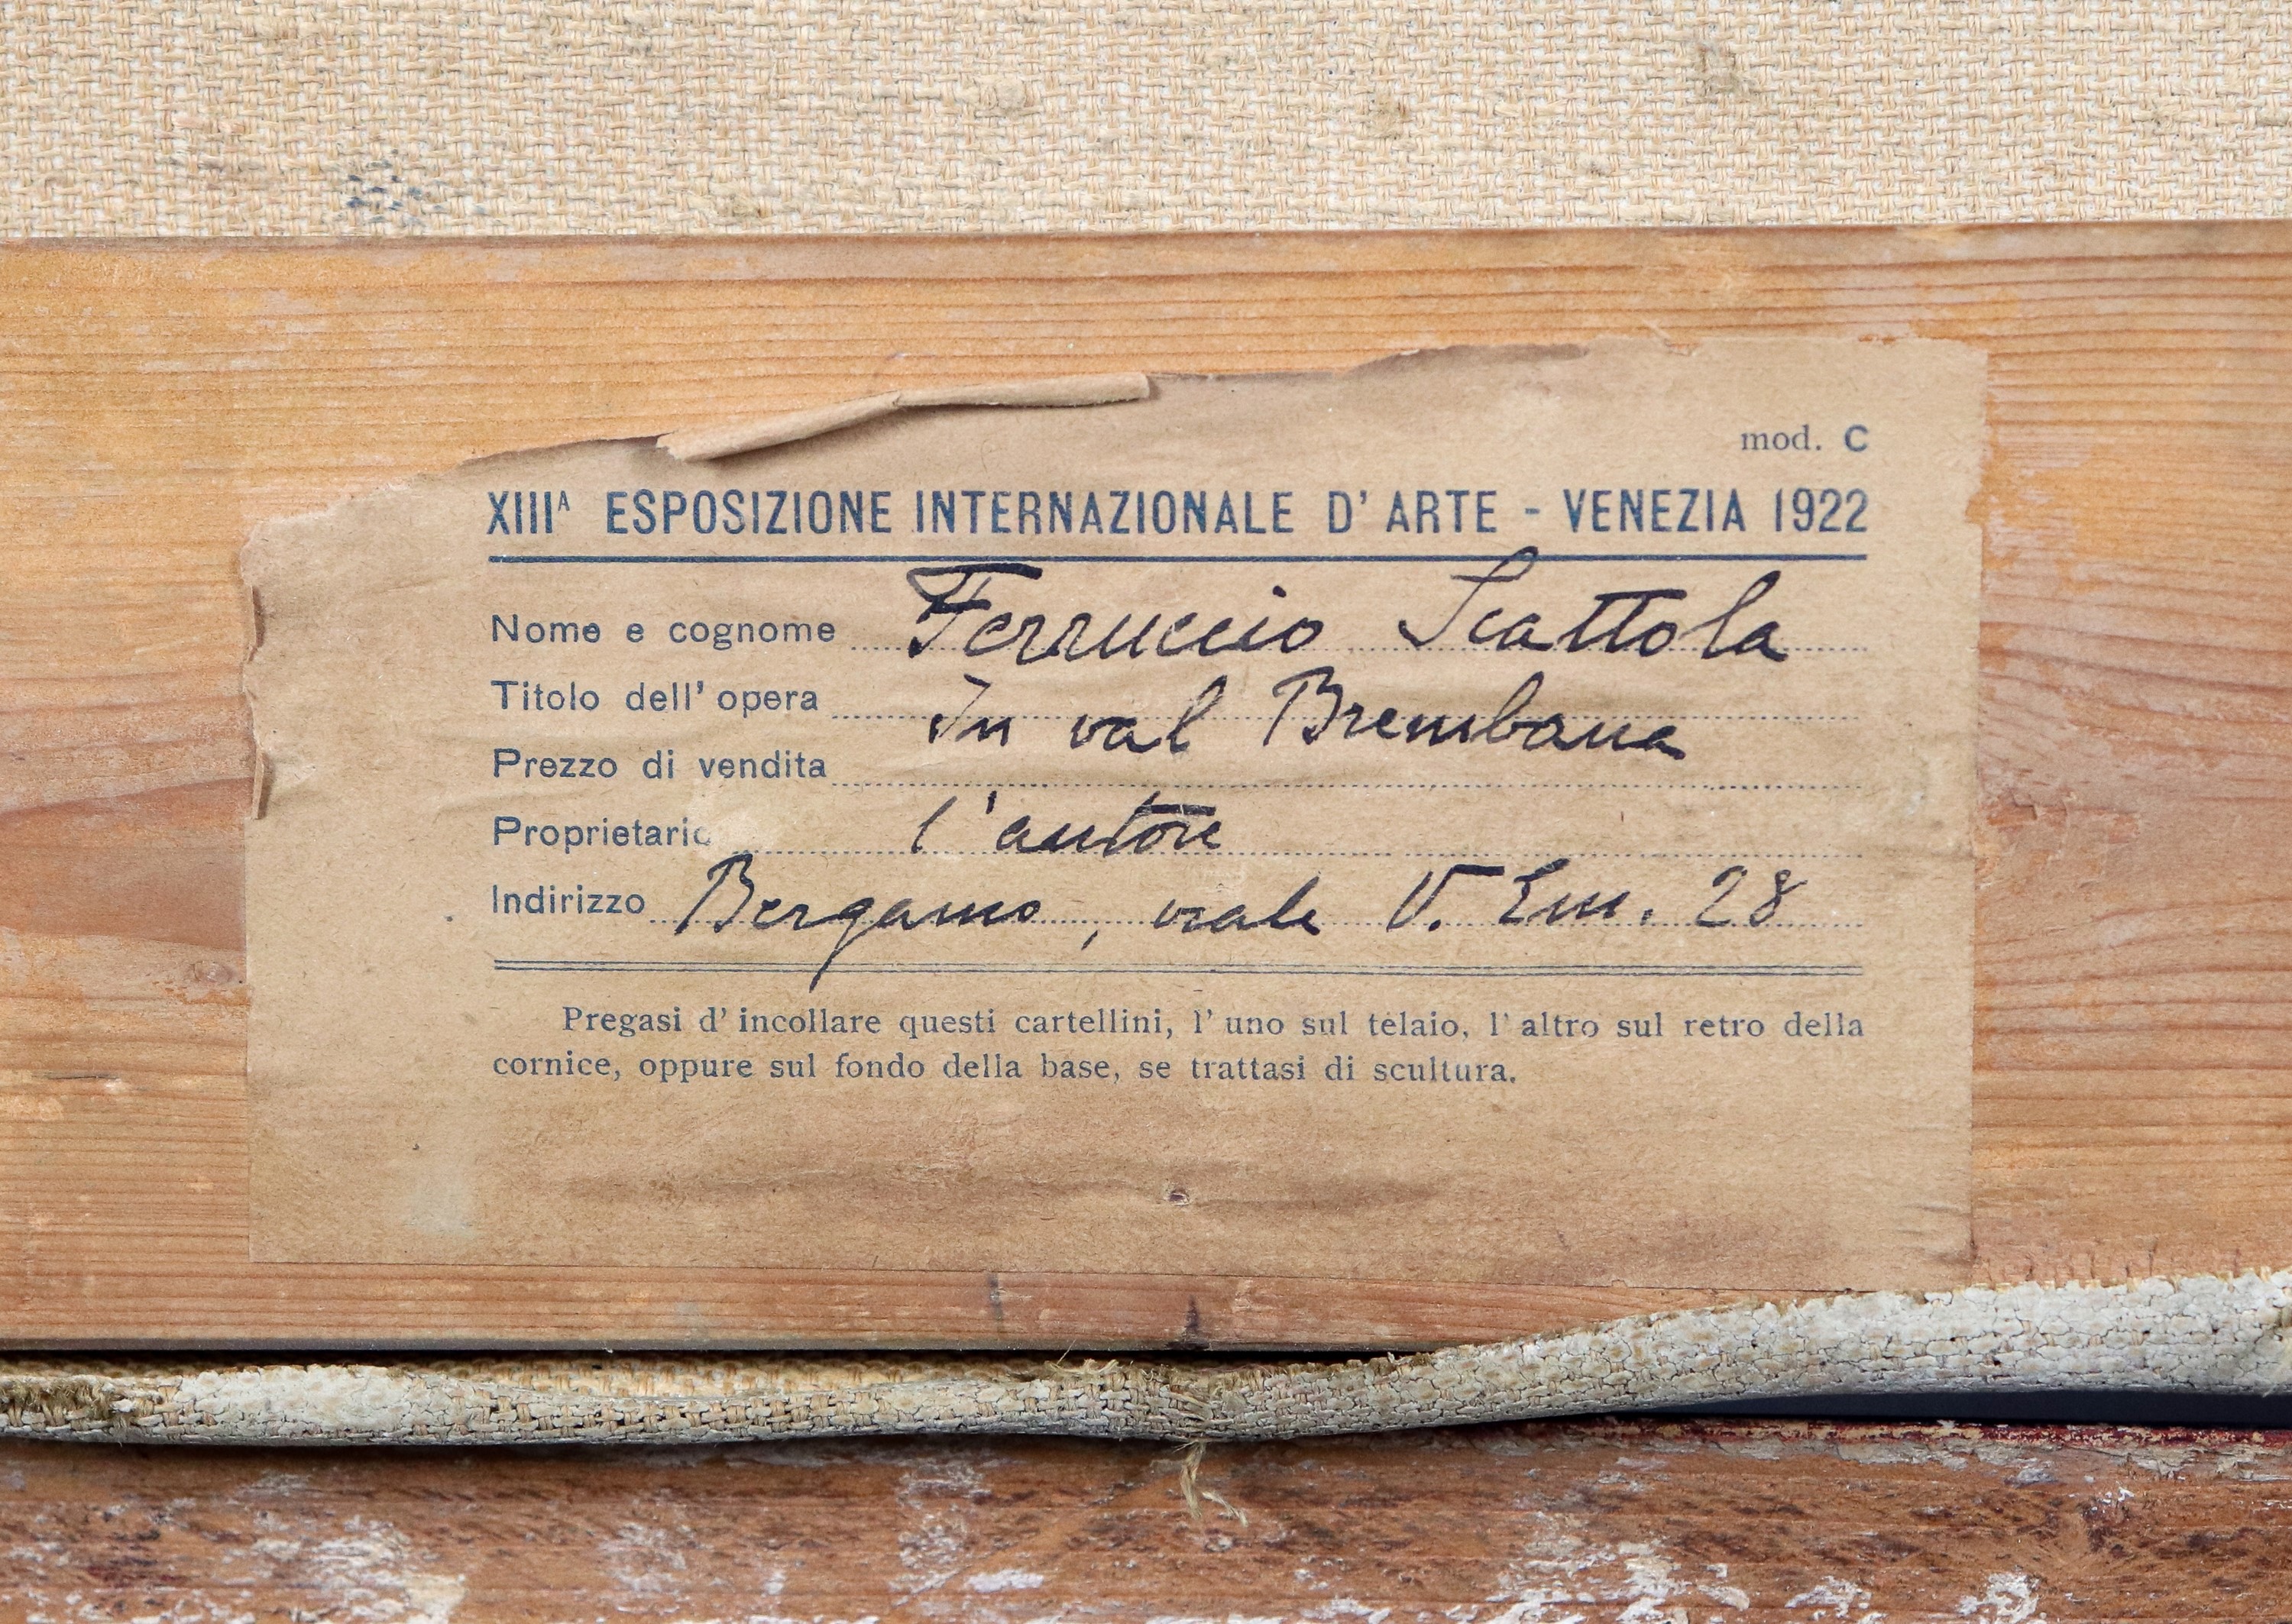 mod. C
XIIIᴬ ESPOSIZIONE INTERNAZIONALE D' ARTE - VENEZIA 1922
Nome e cognome Ferruccio Scattola
Titolo dell' opera In val Brembana
Prezzo di vendita
Proprietario l'autore
Indirizzo Bergamo, viale V. Em. 28
Pregasi d' incollare questi cartellini, l' uno sul telaio, l' altro sul retro della
cornice, oppure sul fondo della base, se trattasi di scultura.